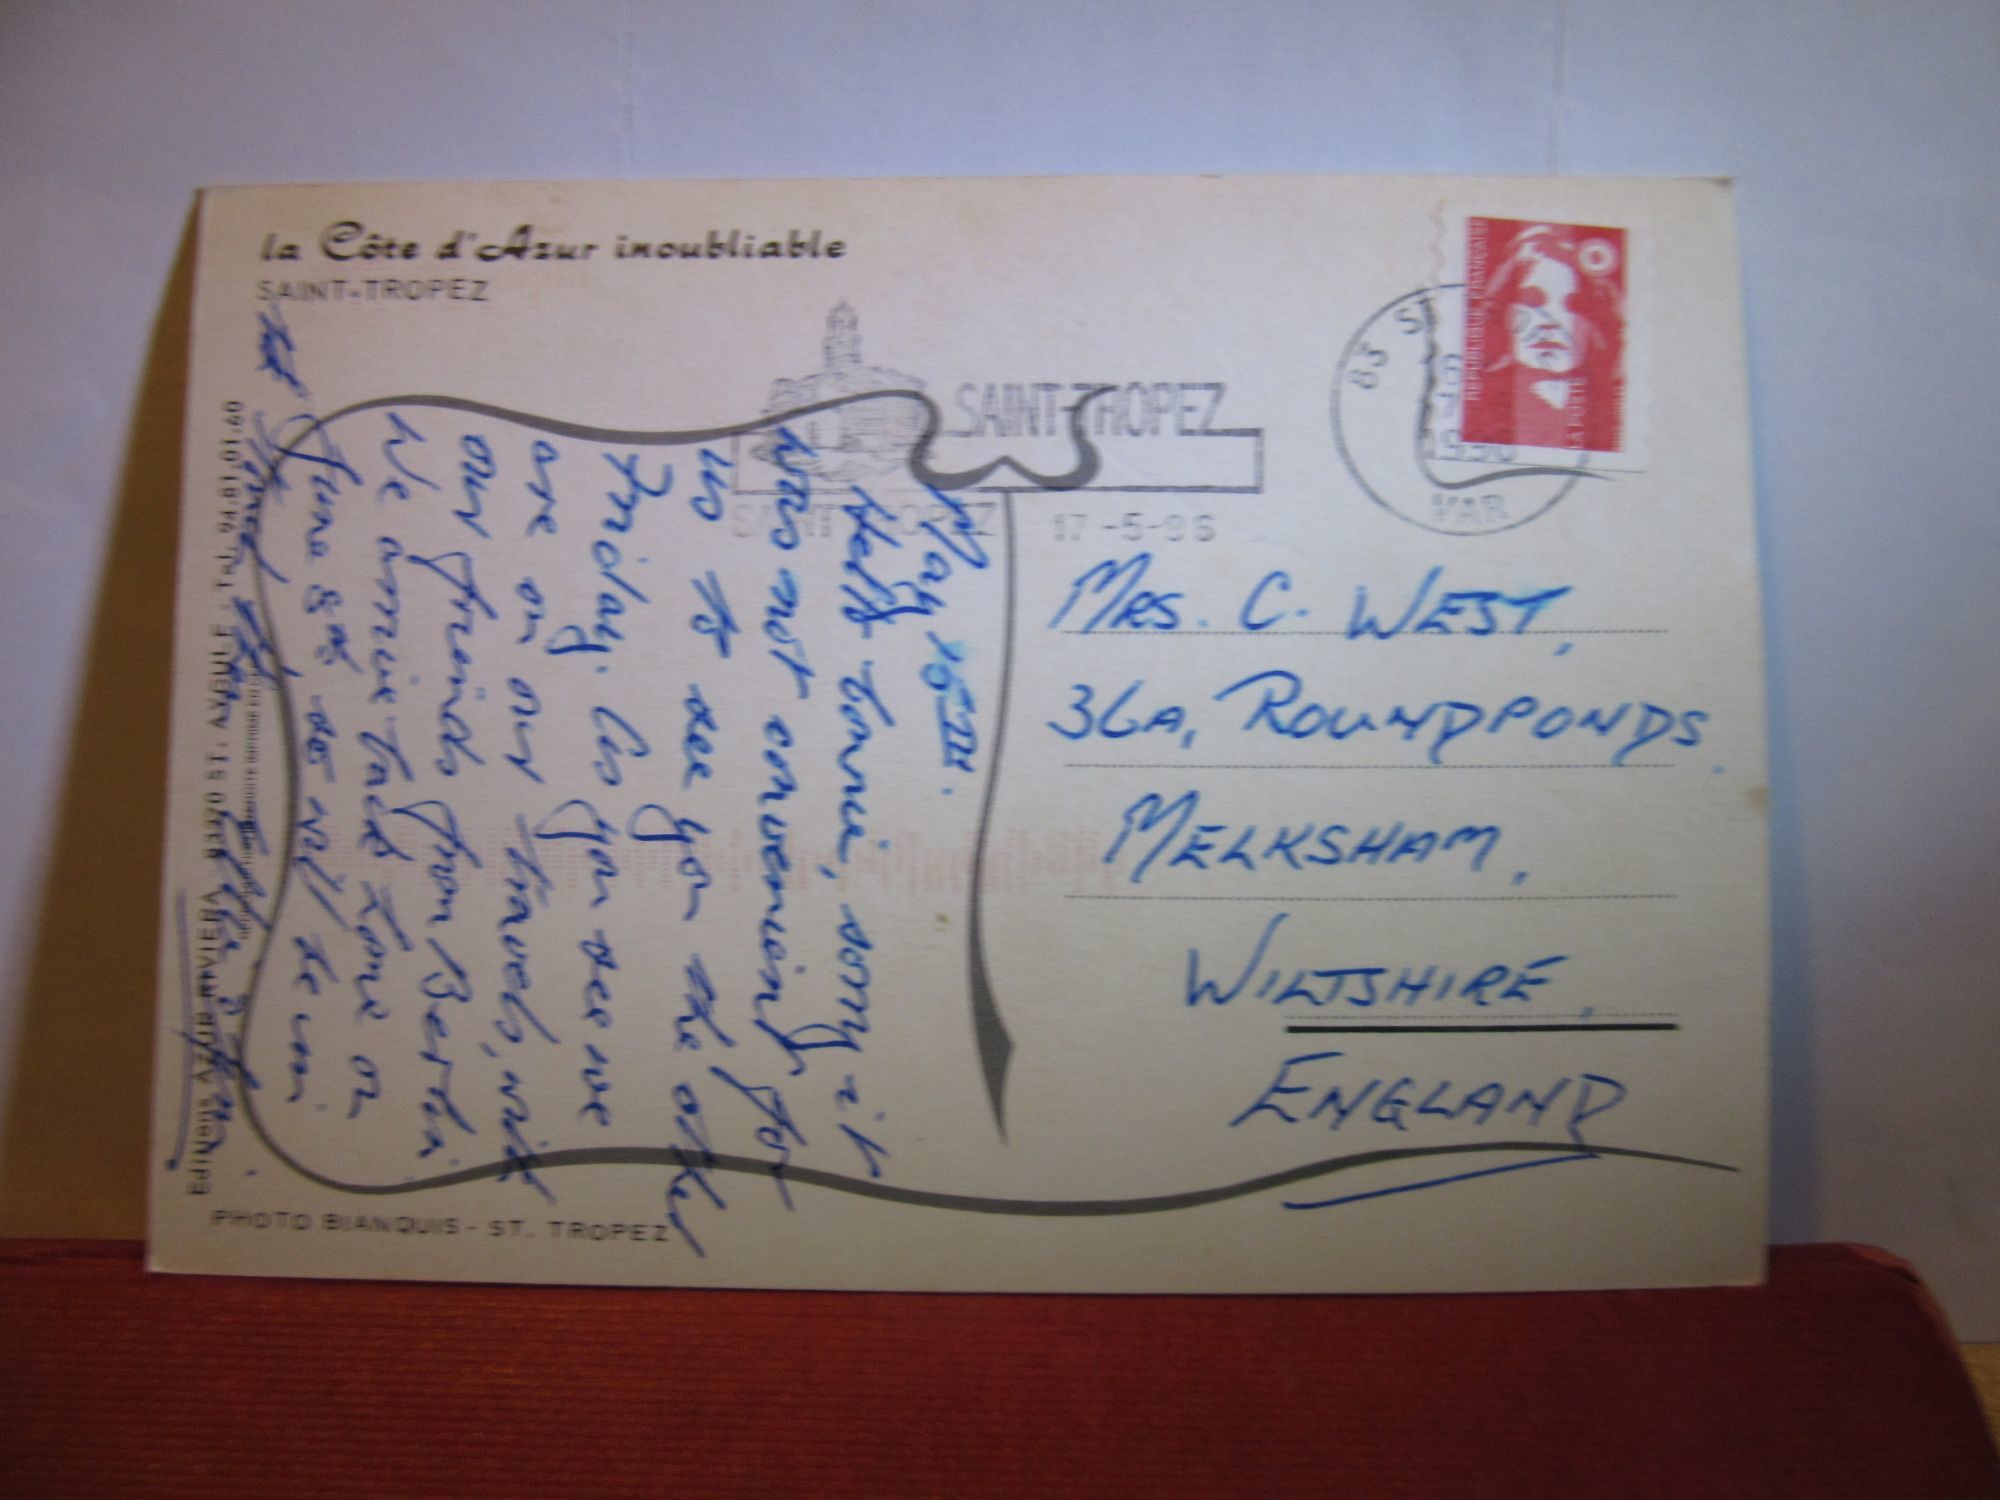 la Côte d'Azur inoubliable
SAINT-TROPEZ
SAINT-TROPEZ
SAINT TROPEZ
17-5-96
83 ST
1996
VAR
REPUBLIQUE FRANÇAISE
LA POSTE
May 16TH.
Hello sorry it
was not convenient for
us to see you the other
Friday. As you see we
are on our travels, with
our friends from
We arrive back home on
June 8th, so will be in
MRS. C. WEST,
36A, ROUNDPONDS.
MELKSHAM,
WILTSHIRE.
ENGLAND
Editions AZUR RIVIERA 83920 ST. AYGULF - Tel. 94.81.01.60
PHOTO BIANQUIS - ST. TROPEZ